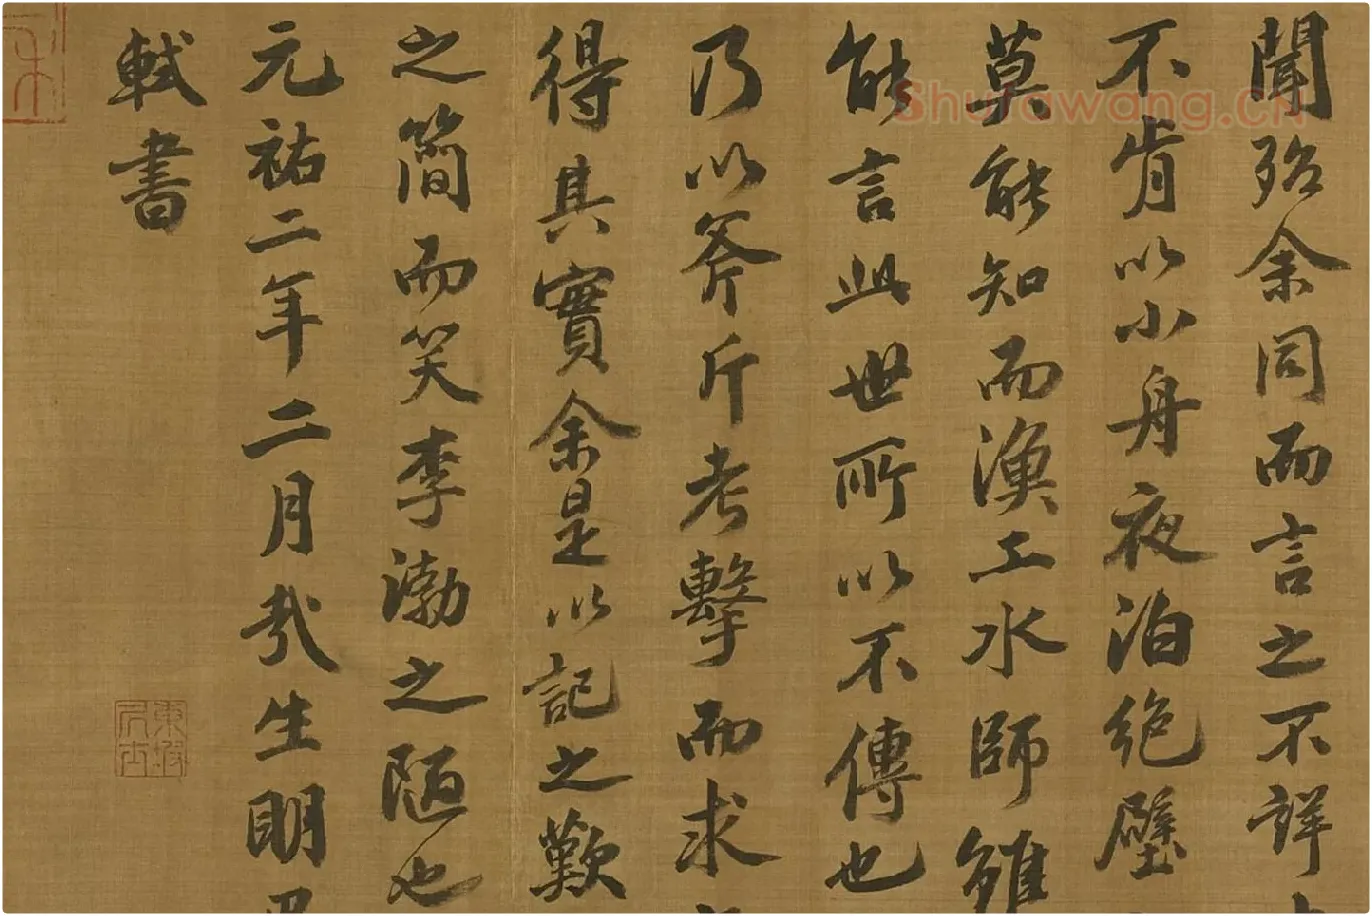 聞殆余同而言之不詳
不肯以小舟夜泊絶壁
莫能知而漁工水師雖
能言此世所以不傳也
乃以斧斤考擊而求
得其實余是以記之歎
之簡而笑李渤之陋也
元祐二年二月哉生明
軾書
東坡居士
Shufawang.CN